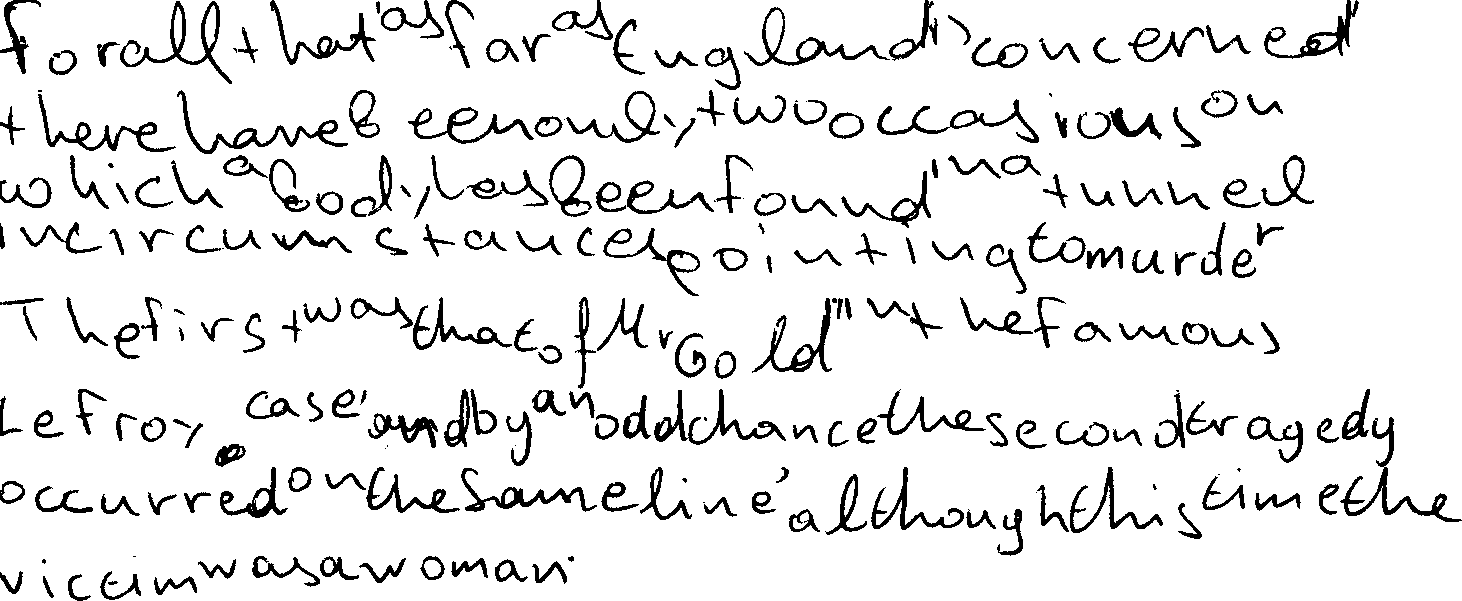 for all that as far as England is concerned
there have been only two occasions on
which a body has been found in a tunnel
in circumstances pointing to murder
The first was that of Mr Gold in the famous
Lefroy case and by an odd chance the second tragedy
occurred on the same line, although this time the
victim was a woman.